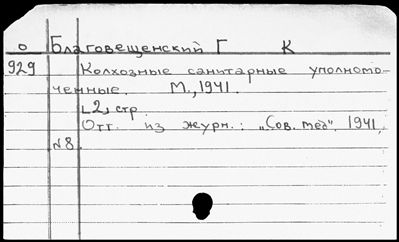 о Благовещенский Г К
929 Колхозные санитарные уполномо-
ченные. М., 1941.
[2] стр.
Отт. из журн.: „Сов. мед". 1941,
№8.